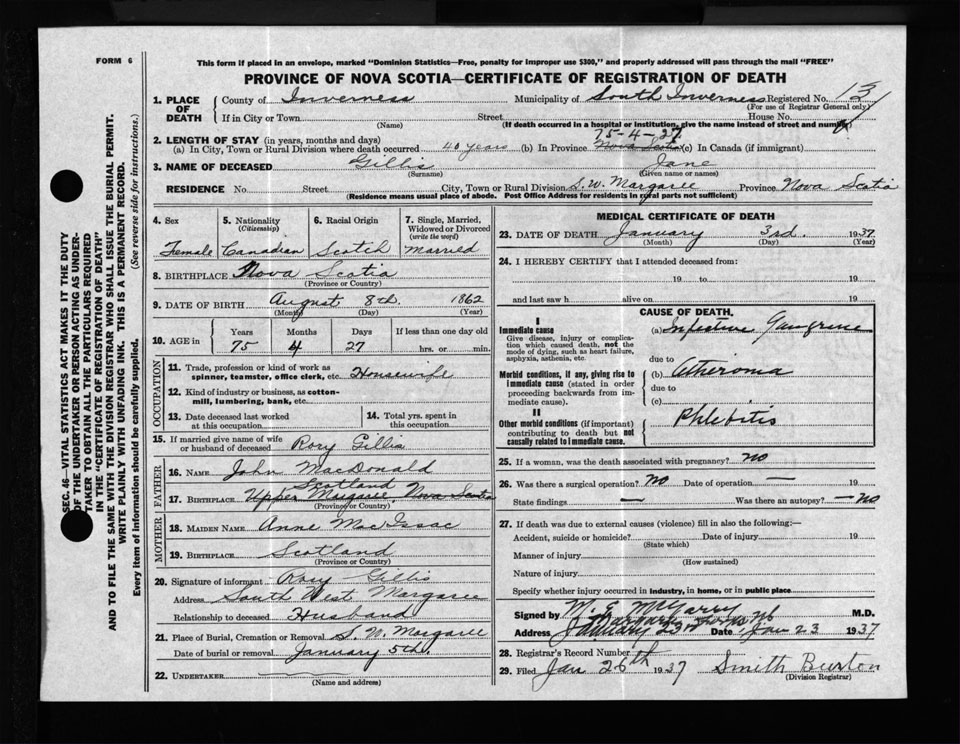 FORM 6
This form if placed in an envelope, marked "Dominion Statistics—Free, penalty for improper use $300," and properly addressed will pass through the mail "FREE"
PROVINCE OF NOVA SCOTIA—CERTIFICATE OF REGISTRATION OF DEATH
1. PLACE OF DEATH County of Inverness Municipality of South Inverness Registered No. 13
(For use of Registrar General only)
If in City or Town Street House No.
(Name) (If death occurred in a hospital or institution, give the name instead of street and number)
75-4-27
2. LENGTH OF STAY (in years, months and days)
(a) In City, Town or Rural Division where death occurred 40 years (b) In Province Nova Scotia (c) In Canada (if immigrant)
3. NAME OF DECEASED Gillis Jane
(Surname) (Given name or names)
RESIDENCE No. Street City, Town or Rural Division S. W. Margaree Province Nova Scotia
(Residence means usual place of abode. Post Office Address for residents in rural parts not sufficient)
4. Sex
Female
5. Nationality
(Citizenship)
Canadian
6. Racial Origin
Scotch
7. Single, Married, Widowed or Divorced
(write the word)
Married
8. BIRTHPLACE Nova Scotia
(Province or Country)
9. DATE OF BIRTH August 8th. 1862
(Month) (Day) (Year)
10. AGE in Years Months Days If less than one day old
75 4 27 hrs. or min.
OCCUPATION
11. Trade, profession or kind of work as
spinner, teamster, office clerk, etc. Housewife
12. Kind of industry or business, as cotton-
mill, lumbering, bank, etc.
13. Date deceased last worked
at this occupation
14. Total yrs. spent in
this occupation
15. If married give name of wife
or husband of deceased Rory Gillis
FATHER
16. NAME John MacDonald
Scotland
17. BIRTHPLACE Upper Margaree, Nova Scotia
(Province or Country)
MOTHER
18. MAIDEN NAME Anne MacIssac
19. BIRTHPLACE Scotland
(Province or Country)
20. Signature of informant Rory Gillis
Address South West Margaree
Relationship to deceased Husband
21. Place of Burial, Cremation or Removal S. W. Margaree
Date of burial or removal January 5th.
22. UNDERTAKER
(Name and address)
MEDICAL CERTIFICATE OF DEATH
23. DATE OF DEATH January 3rd. 1937
(Month) (Day) (Year)
24. I HEREBY CERTIFY that I attended deceased from:
19 to 19
and last saw h alive on 19
CAUSE OF DEATH.
I
Immediate cause
Give disease, injury or complica-
tion which caused death, not the
mode of dying, such as heart failure,
asphyxia, asthenia, etc.
(a) Infective Gangrene
due to
Morbid conditions, if any, giving rise to
immediate cause (stated in order
proceeding backwards from im-
mediate cause).
(b) Atheroma
due to
(c)
II
Other morbid conditions (if important)
contributing to death but not
causally related to immediate cause.
Phlebitis
25. If a woman, was the death associated with pregnancy? no
26. Was there a surgical operation? no Date of operation —
State findings — Was there an autopsy? — no
27. If death was due to external causes (violence) fill in also the following:—
Accident, suicide or homicide? Date of injury 19
(State which)
Manner of injury
(How sustained)
Nature of injury
Specify whether injury occurred in industry, in home, or in public place
Signed by W. E. McGarry M.D.
Address Margaree Forks Date Jan 23 1937
January 23
28. Registrar's Record Number
29. Filed Jan 26th 1937 Smith Burton
(Division Registrar)
SEC. 46—VITAL STATISTICS ACT MAKES IT THE DUTY
OF THE UNDERTAKER OR PERSON ACTING AS UNDER-
TAKER TO OBTAIN ALL THE PARTICULARS REQUIRED
IN THE "CERTIFICATE OF REGISTRATION OF DEATH"
AND TO FILE THE SAME WITH THE DIVISION REGISTRAR WHO SHALL ISSUE THE BURIAL PERMIT.
WRITE PLAINLY WITH UNFADING INK. THIS IS A PERMANENT RECORD.
Every item of information should be carefully supplied. (See reverse side for instructions.)